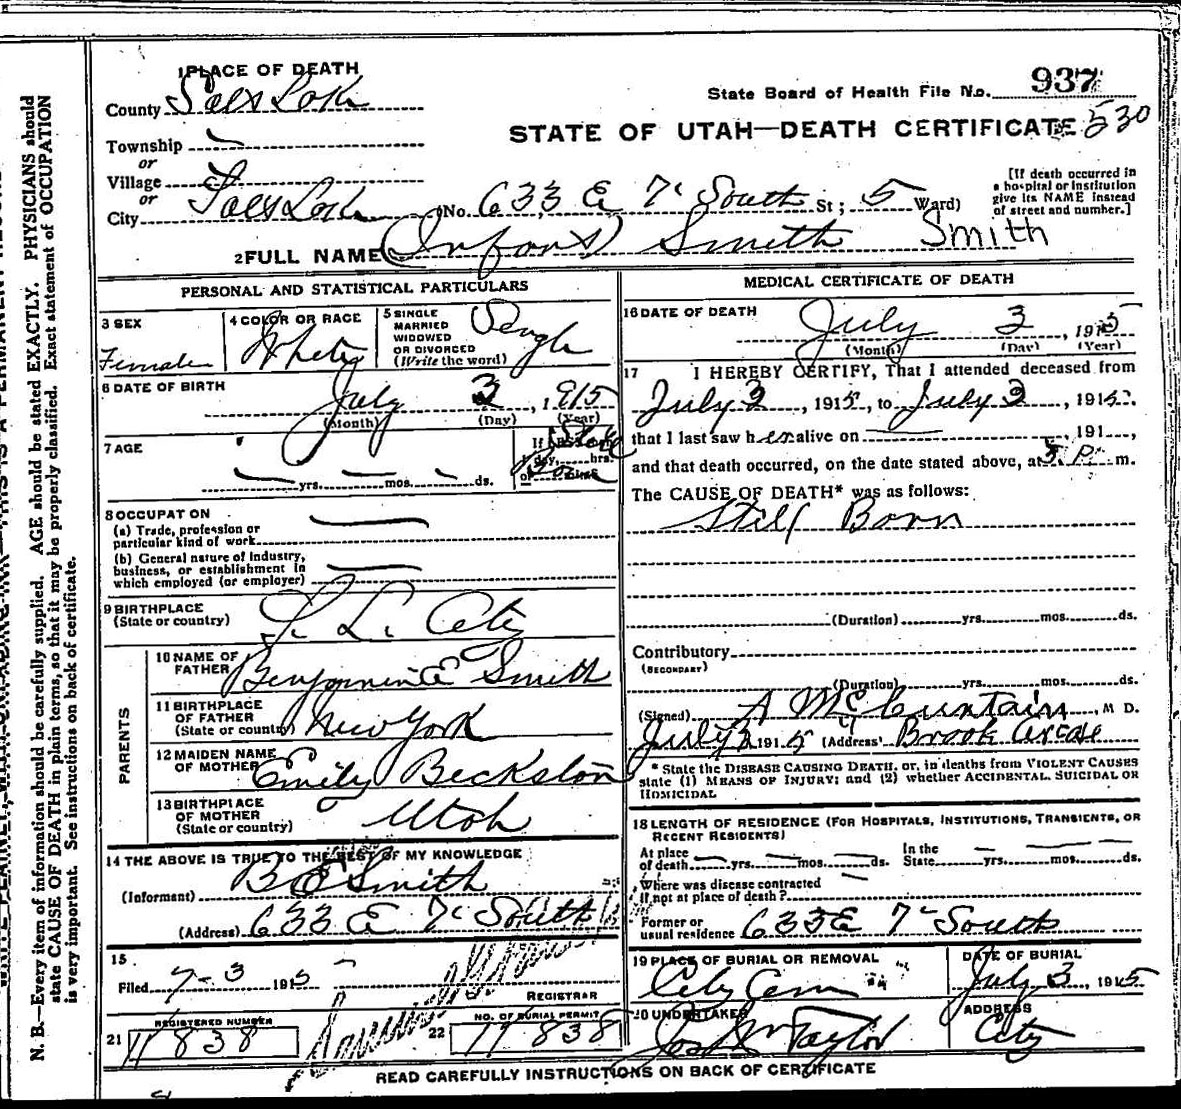 1 PLACE OF DEATH
County Salt Lake
Township
or
Village
or
City Salt Lake (No. 633 E 7th South St; 5 Ward)
State Board of Health File No. 937
530
STATE OF UTAH—DEATH CERTIFICATE
[If death occurred in
a hospital or institution
give its NAME instead
of street and number.]
2 FULL NAME (Infant) Smith Smith
PERSONAL AND STATISTICAL PARTICULARS
3 SEX
Female
4 COLOR OR RACE
White
5 SINGLE
MARRIED
WIDOWED
OR DIVORCED
(Write the word)
Single
6 DATE OF BIRTH
July 3, 1915
(Month) (Day) (Year)
7 AGE
yrs. mos. ds.
If LESS than
1 day, hrs.
or
8 OCCUPATION
(a) Trade, profession or
particular kind of work
(b) General nature of industry,
business, or establishment in
which employed (or employer)
9 BIRTHPLACE
(State or country)
S. L. City
PARENTS
10 NAME OF
FATHER
Benjamin E Smith
11 BIRTHPLACE
OF FATHER
(State or country)
New York
12 MAIDEN NAME
OF MOTHER
Emily Beckston
13 BIRTHPLACE
OF MOTHER
(State or country)
Utah
14 THE ABOVE IS TRUE TO THE BEST OF MY KNOWLEDGE
(Informant) B E Smith
(Address) 633 E 7th South
15
Filed 7-3 1915
REGISTRAR
21 REGISTERED NUMBER
11838
22 NO. OF BURIAL PERMIT
11838
MEDICAL CERTIFICATE OF DEATH
16 DATE OF DEATH
July 3, 1915
(Month) (Day) (Year)
17 I HEREBY CERTIFY, That I attended deceased from
July 3, 1915, to July 3, 1915.
that I last saw her alive on 191 ,
and that death occurred, on the date stated above, at 5 P. m.
The CAUSE OF DEATH* was as follows:
Still Born
(Duration) yrs. mos. ds.
Contributory
(SECONDARY)
(Duration) yrs. mos. ds.
(Signed) A McCuntain, M D.
July 3 1915 (Address) Brook Arcade
* State the DISEASE CAUSING DEATH, or, in deaths from VIOLENT CAUSES
state (1) MEANS OF INJURY; and (2) whether ACCIDENTAL, SUICIDAL OR
HOMICIDAL
18 LENGTH OF RESIDENCE (FOR HOSPITALS, INSTITUTIONS, TRANSIENTS, OR
RECENT RESIDENTS)
At place
of death yrs. mos. ds.
In the
State yrs. mos. ds.
Where was disease contracted
if not at place of death?
Former or
usual residence 633 E 7th South
19 PLACE OF BURIAL OR REMOVAL
City Cem
DATE OF BURIAL
July 3, 1915
20 UNDERTAKER
Jos Wm Taylor
ADDRESS
City
READ CAREFULLY INSTRUCTIONS ON BACK OF CERTIFICATE
N. B.—Every item of information should be carefully supplied. AGE should be stated EXACTLY. PHYSICIANS should
state CAUSE OF DEATH in plain terms, so that it may be properly classified. Exact statement of OCCUPATION
is very important. See instructions on back of certificate.